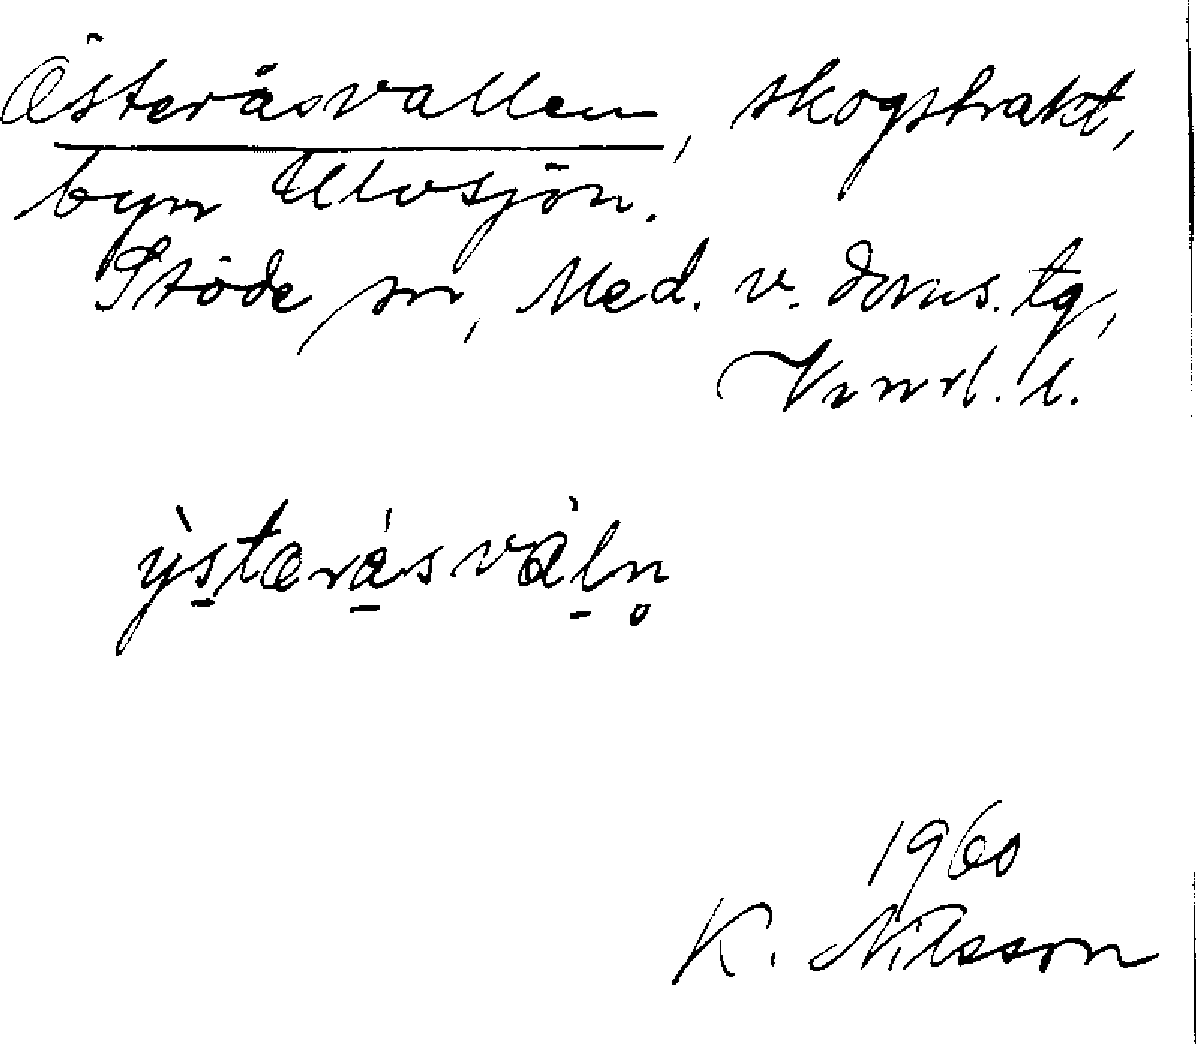 Österåsvallen, skogstrakt,
byn Ulvsjön.
Stöde sn, Med. v. doms. tg,
Vnrl. l.
ỳstərásvàln̥
1960
K. Nilsson